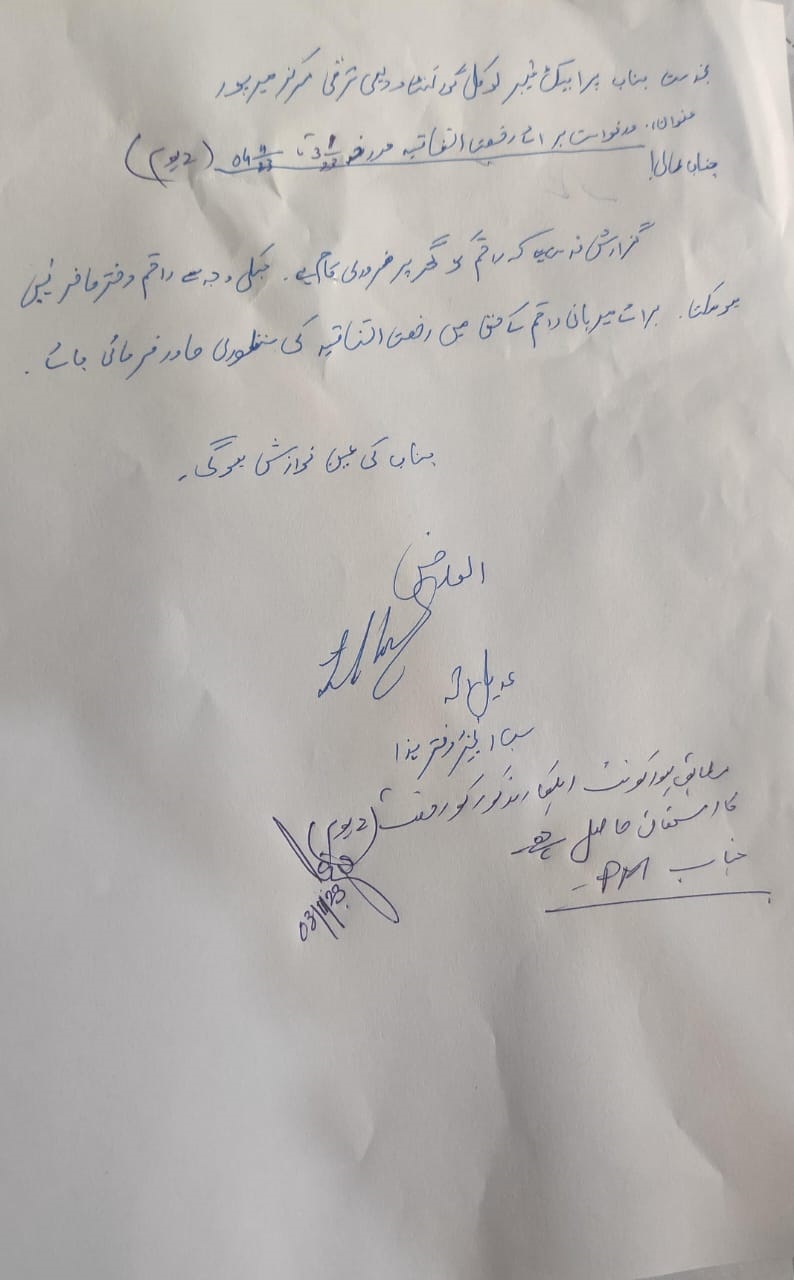 بخدمت جناب پراجیکٹ منیجر لوکل گورنمنٹ و دیہی ترقی مرکز میرپور
عنوان: درخواست برائے رخصت اتفاقیہ مورخہ 3/11 تا 04/11/23 (2 یوم)
جناب عالی!
گزارش خدمت ہے کہ راقم کو گھر پر ضروری کام ہے۔ جسکی وجہ سے راقم دفتر حاضر نہیں
ہو سکتا۔ برائے مہربانی راقم کے حق میں رخصت اتفاقیہ کی منظوری صادر فرمائی جائے۔
جناب کی عین نوازش ہوگی۔
العارض
عدیل
سب انجینئر دفتر ہذا
مطابق اہلکار مذکور کو رخصت (2 یوم)
کا استحقاق حاصل ہے
جناب PM
03/11/23